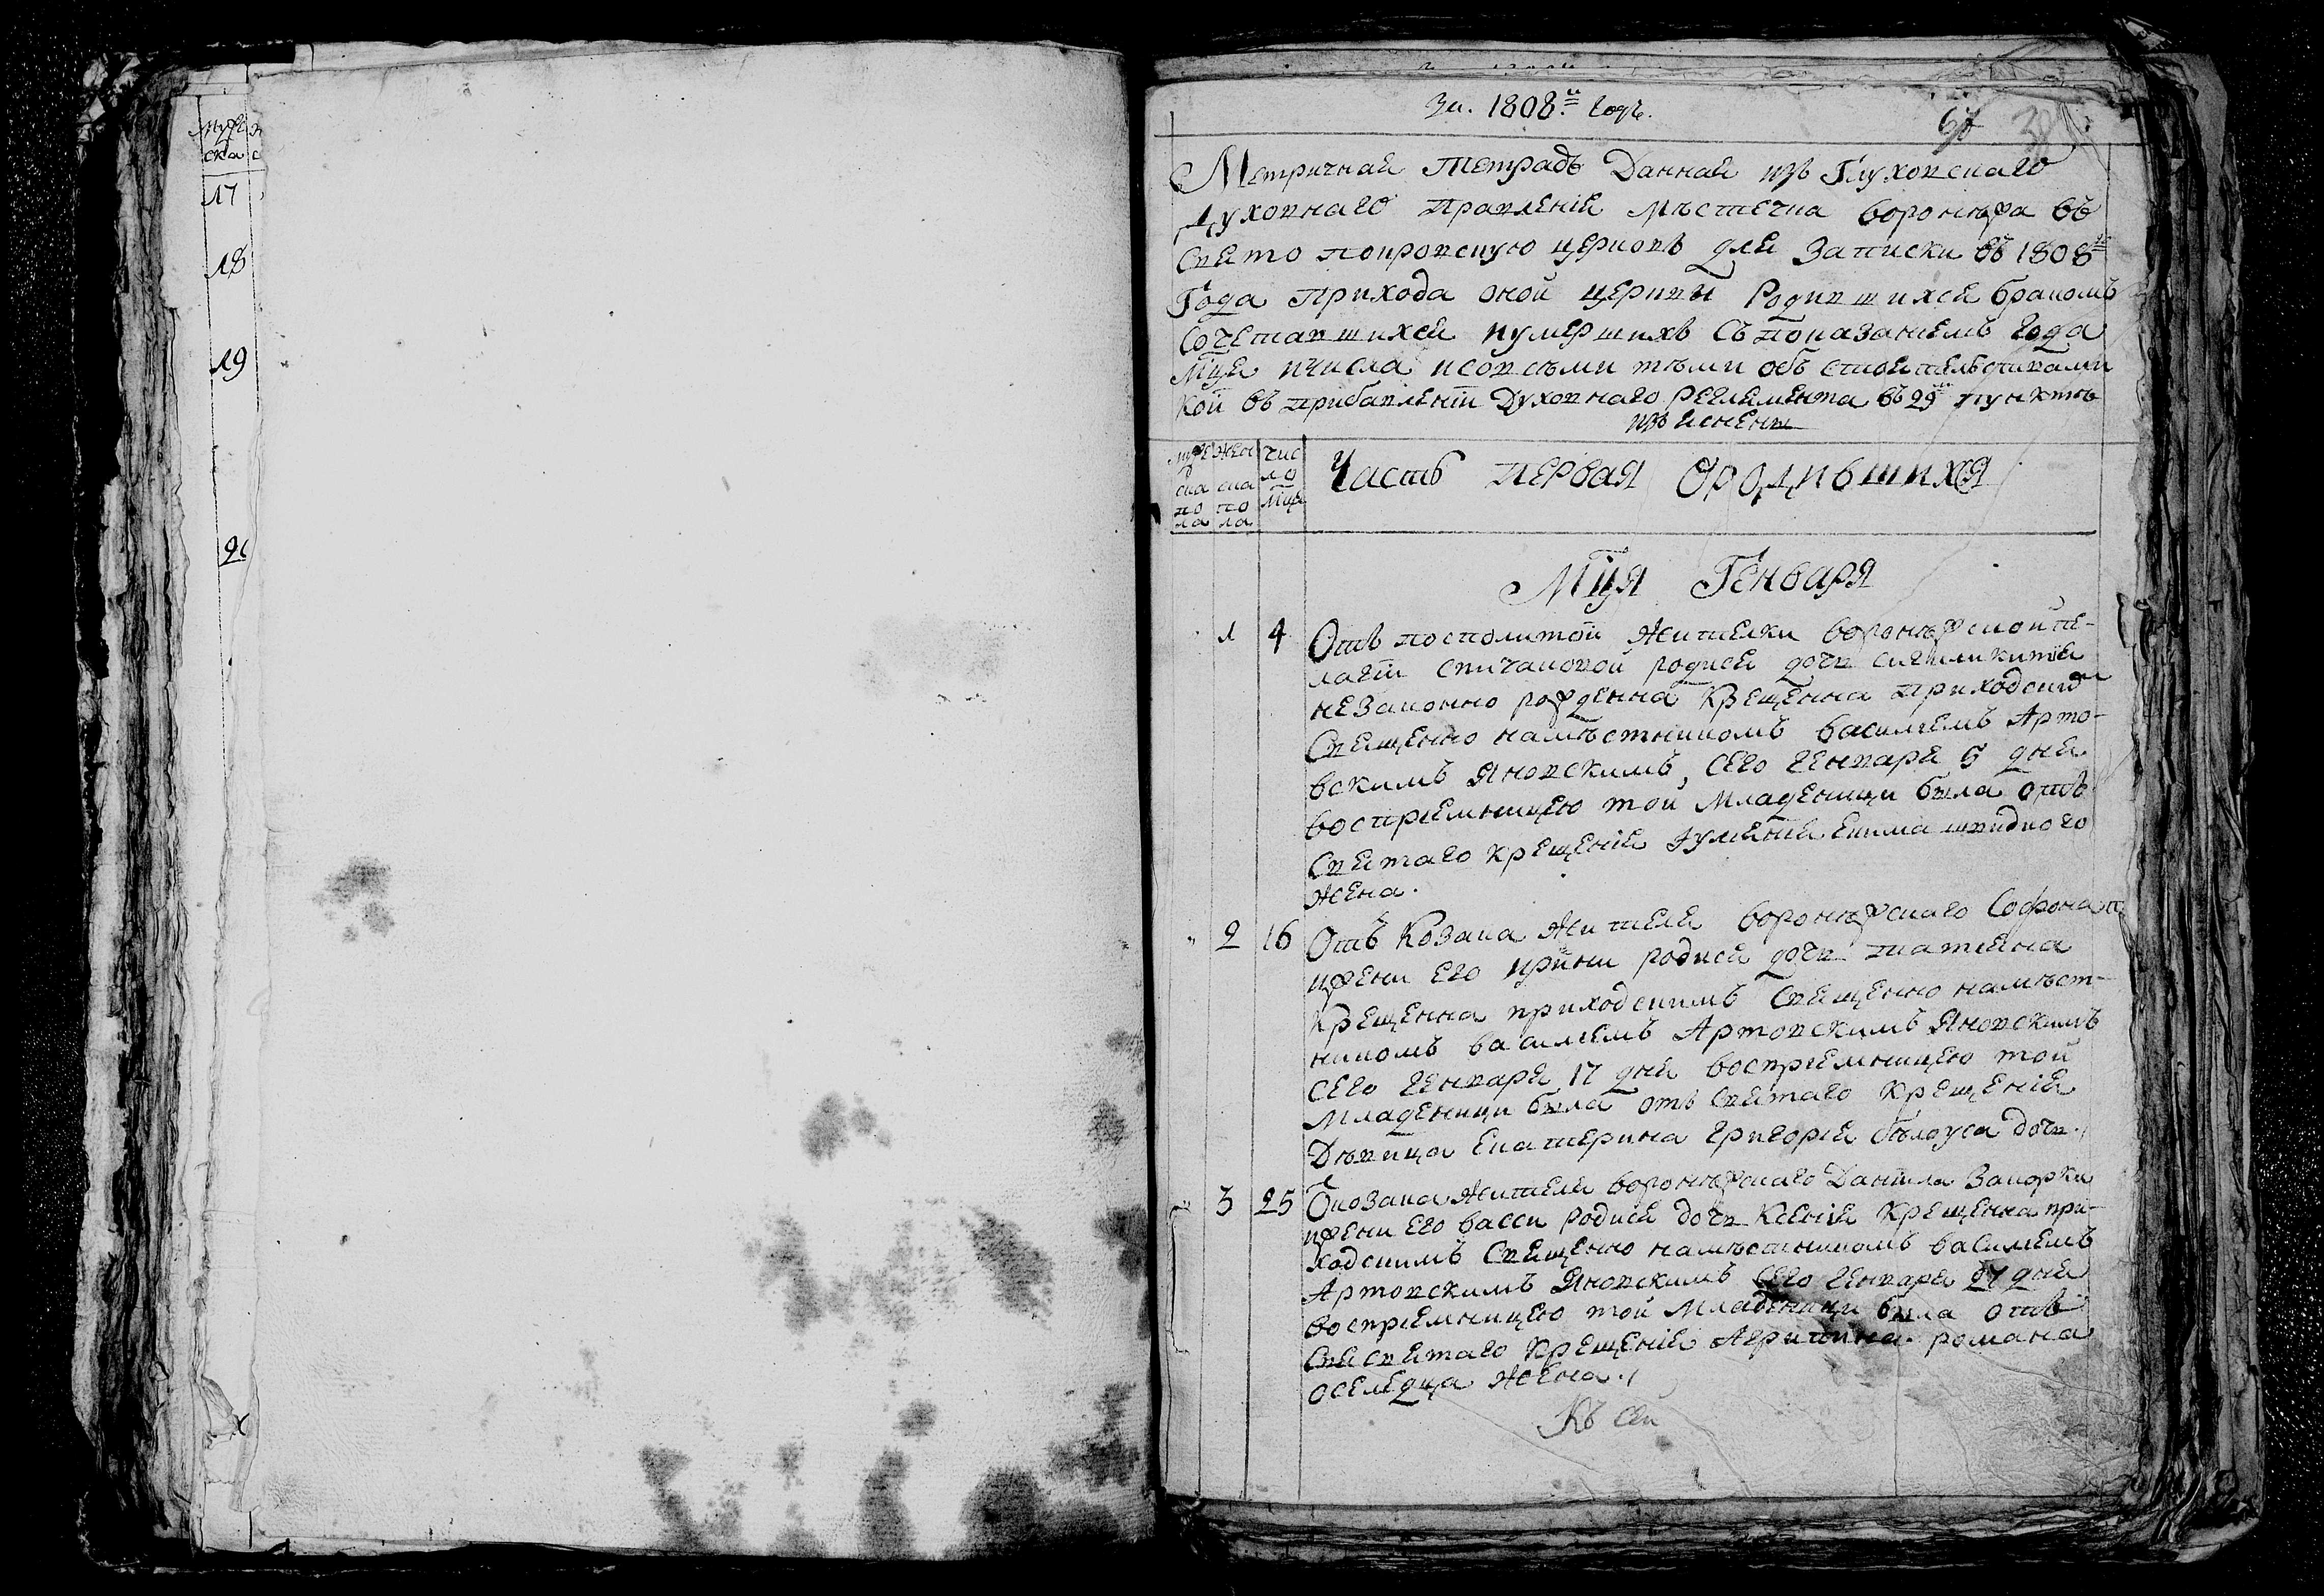 муже
ска
17
18
19
За. 1808й годъ.
67
Метричная тетрадь Данная изъ Глуховскаго
Духовнаго правленія мѣстечка воронѣжа въ
Свято покровскую церковъ для записки въ 1808й
Года прихода оной церкви Родившихся бракомъ
Сочетавшихся иумершихъ Съ показаніемъ года
Мца ичисла исовсѣми тѣми обстоятельствами
кои въ прибавленіи Духовнаго Регламента въ 29м пунктѣ
изъяснены
муже ска по ла
жен ска по ла
чис ло Мца
Часть первая Ородившихся
Мця Генваря
1 4 Отъ посполитой жителки воронѣжской пе-
лагіи родися дочь
незаконно рожденна Крещенна приходским
Священно намѣстникомъ василіемъ Арто-
вскимъ Яновскимъ, сего генваря 5 дня
воспріемницею той младеници была отъ
Святаго крещенія
жена.
2 16 Отъ Козака жителя воронѣжскаго Софона
ижени его ирины родися дочь татияна
Крещенна приходскимъ Священно намѣст-
никомъ василіемъ Артовскимъ Яновскимъ
сего генваря 17 дня воспріемницею той
младеници была отъ Святаго Крещенія
Дѣвица Екатерина Григорія бѣлоуса дочь.
3 25 Öкозака жителя воронѣжскаго Данила
ижени его васси родися дочь Ксенія Крещенна при-
ходскимъ Священно намѣстникомъ василіемъ
Артовскимъ Яновскимъ сего генваря 27 дня
воспріемницею той младеници была отъ
Свясвятаго Крещенія Агрипина романа
оселедца жена.
Къ сей